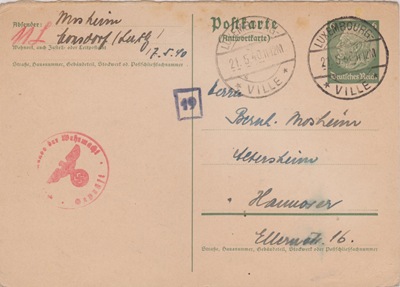 Absender: Mosheim
Consdorf (Luxbg)
17.5.40
Wohnort, auch Zustell- oder Leitpostamt
Straße, Hausnummer, Gebäudeteil, Stockwerk od. Postschließfachnummer
Postkarte
(Antwortkarte)
VILLE
LUXEMBOURG
VILLE
Deutsches Reich
19
der Wehrmacht
Herrn
Bernh. Mosheim
Altersheim
Hannover
Ellernstr. 16.
Straße, Hausnummer, Gebäudeteil, Stockwerk od. Postschließfachnummer